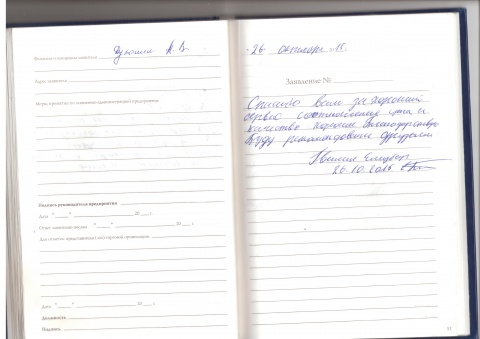 Фамилия и инициалы заявителя
Адрес заявителя
Меры, принятые по заявлению администрацией предприятия
Подпись руководителя предприятия
Дата "___" ________ 20 ___ г.
Ответ заявителю послан "___" ________ 20 ___ г.
Для отметок представителя (-ей) торговой организации
Дата "___" ________ 20 ___ г.
Должность
Подпись
26 октября
Заявление №
Спасибо всем за хороший
сервис соотношение цена и
качество хорошее благодарствую
Буду рекомендовать
26.10.2015